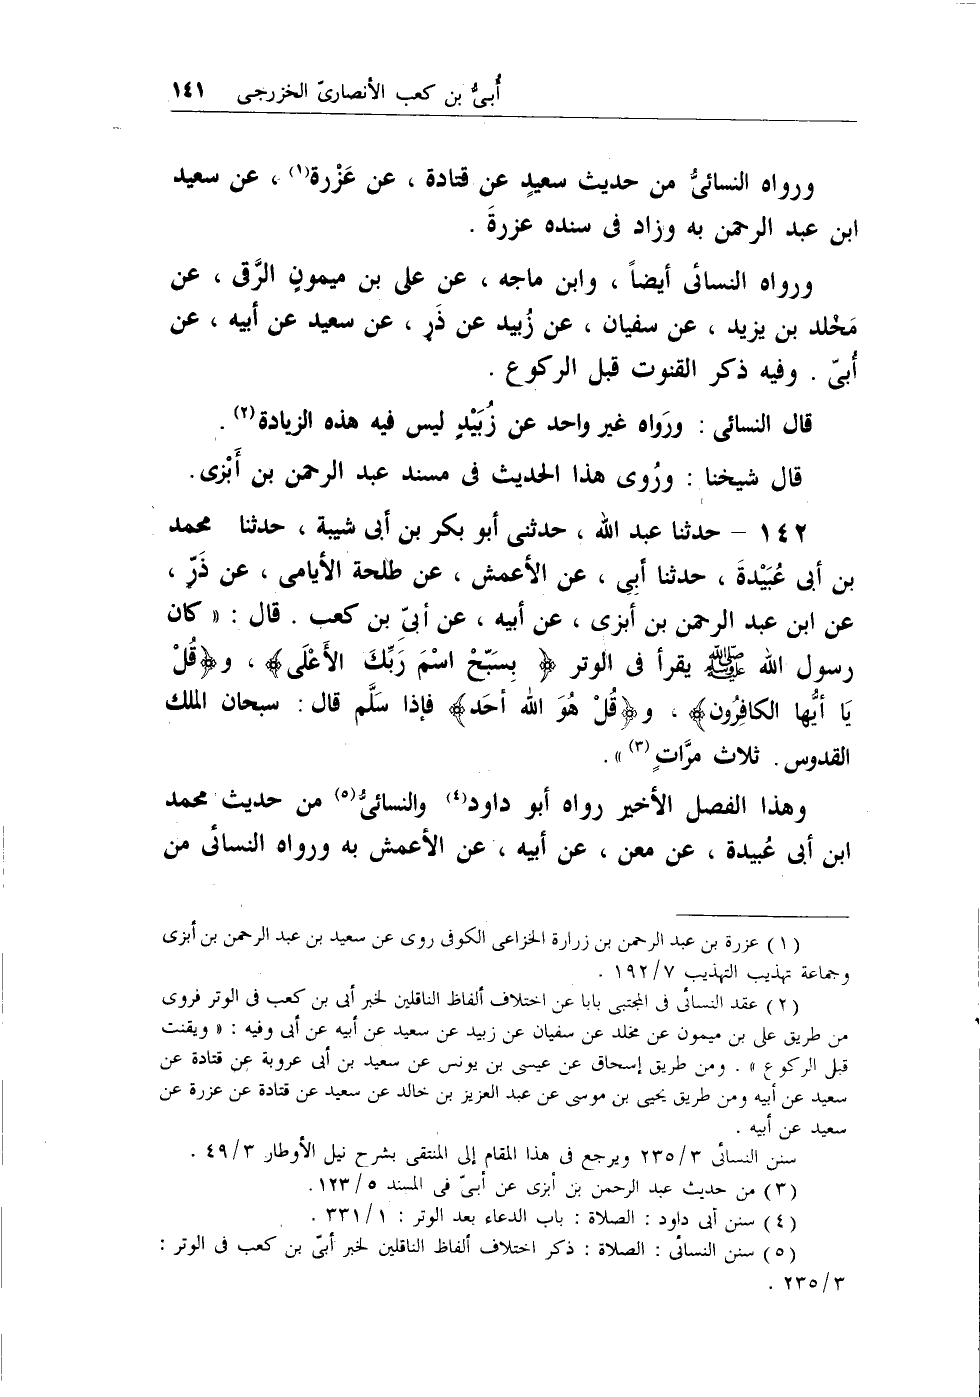 أُبىُّ بن كعب الأنصارىّ الخزرجى ١٤١
ورواه النسائىُّ من حديث سعيدٍ عن قتادة ، عن عَزْرة(١) ، عن سعيد
ابن عبد الرحمن به وزاد فى سنده عزرةَ .
ورواه النسائى أيضاً ، وابن ماجه ، عن على بن ميمونٍ الرَّقى ، عن
مَخْلد بن يزيد ، عن سفيان ، عن زُبيد عن ذَرٍ ، عن سعيد عن أبيه ، عن
أُبىّ . وفيه ذكر القنوت قبل الركوع .
قال النسائى : ورَواه غير واحد عن زُبَيْدٍ ليس فيه هذه الزيادة(٢) .
قال شيخنا : ورُوى هذا الحديث فى مسند عبد الرحمن بن أَبْزى .
١٤٢ – حدثنا عبد الله ، حدثنى أبو بكر بن أبى شيبة ، حدثنا محمد
بن أبى عُبَيْدةَ ، حدثنا أبِى ، عن الأعمش ، عن طلحة الأيامى ، عن ذَرٍّ ،
عن ابن عبد الرحمن بن أبزى ، عن أبيه ، عن أبىّ بن كعب . قال : « كان
رسول الله ﷺ يقرأ فى الوتر ﴿ بِسَبّحْ اسْمَ رَبِّكَ الأَعْلَى﴾ ، و﴿قُلْ
يَا أيُّها الكافِرُون﴾ ، و﴿قُلْ هُوَ اللهُ أحَد﴾ فإذا سَلَّم قال : سبحان الملك
القدوس . ثلاث مرَّاتٍ (٣) » .
وهذا الفصل الأخير رواه أبو داود(٤) والنسائىُّ(٥) من حديث محمد
ابن أبى عُبيدة ، عن معن ، عن أبيه ، عن الأعمش به ورواه النسائى من
(١) عزرة بن عبد الرحمن بن زرارة الخزاعى الكوفى روى عن سعيد بن عبد الرحمن بن أبزى
وجماعة تهذيب التهذيب ١٩٢/٧ .
(٢) عقد النسائى فى المجتبى بابا عن اختلاف ألفاظ الناقلين لخبر أبى بن كعب فى الوتر فروى
من طريق على بن ميمون عن مخلد عن سفيان عن زبيد عن سعيد عن أبيه عن أبى وفيه : « ويقنت
قبل الركوع » . ومن طريق إسحاق عن عيسى بن يونس عن سعيد بن أبى عروبة عن قتادة عن
سعيد عن أبيه ومن طريق يحيى بن موسى عن عبد العزيز بن خالد عن سعيد عن قتادة عن عزرة عن
سعيد عن أبيه .
سنن النسائى ٢٣٥/٣ ويرجع فى هذا المقام إلى المنتقى بشرح نيل الأوطار ٤٩/٣ .
(٣) من حديث عبد الرحمن بن أبزى عن أبىّ فى المسند ١٢٣/٥ .
(٤) سنن أبى داود : الصلاة : باب الدعاء بعد الوتر : ٣٣١/١ .
(٥) سنن النسائى : الصلاة : ذكر اختلاف ألفاظ الناقلين لخبر أبىّ بن كعب فى الوتر :
٢٣٥/٣ .